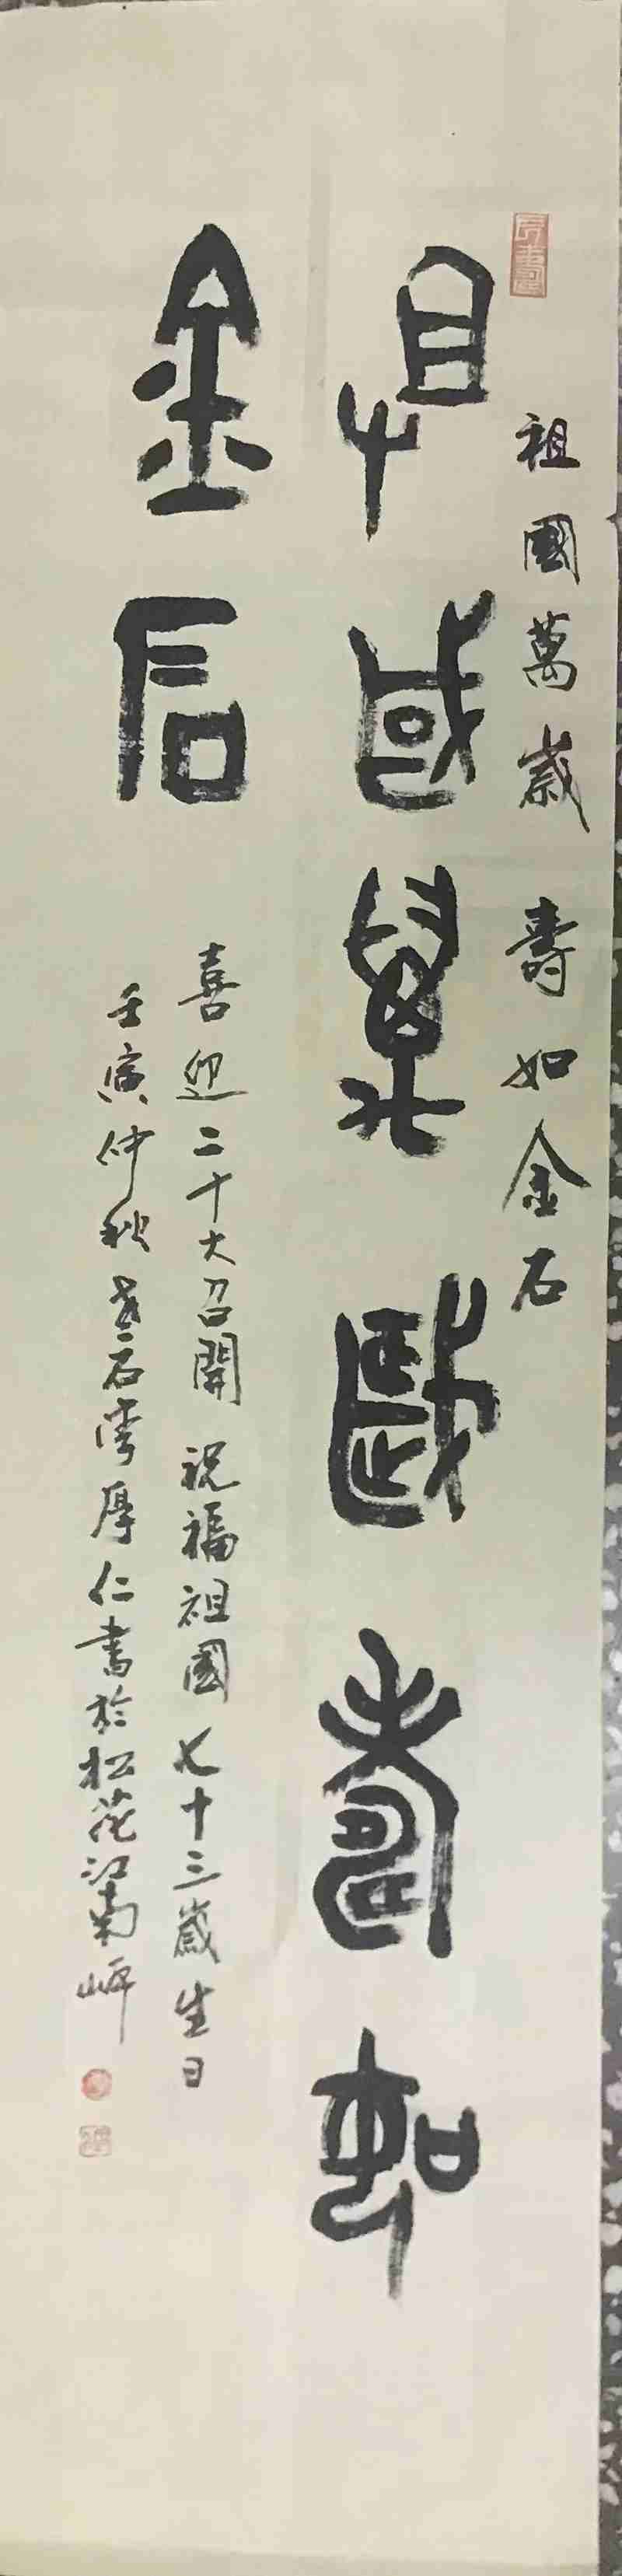 祖國萬歲 壽如金石
祖國萬歲壽如
金石
喜迎二十大召開 祝福祖國七十三歲生日
壬寅仲秋 老石灣厚仁書於松花江南岸